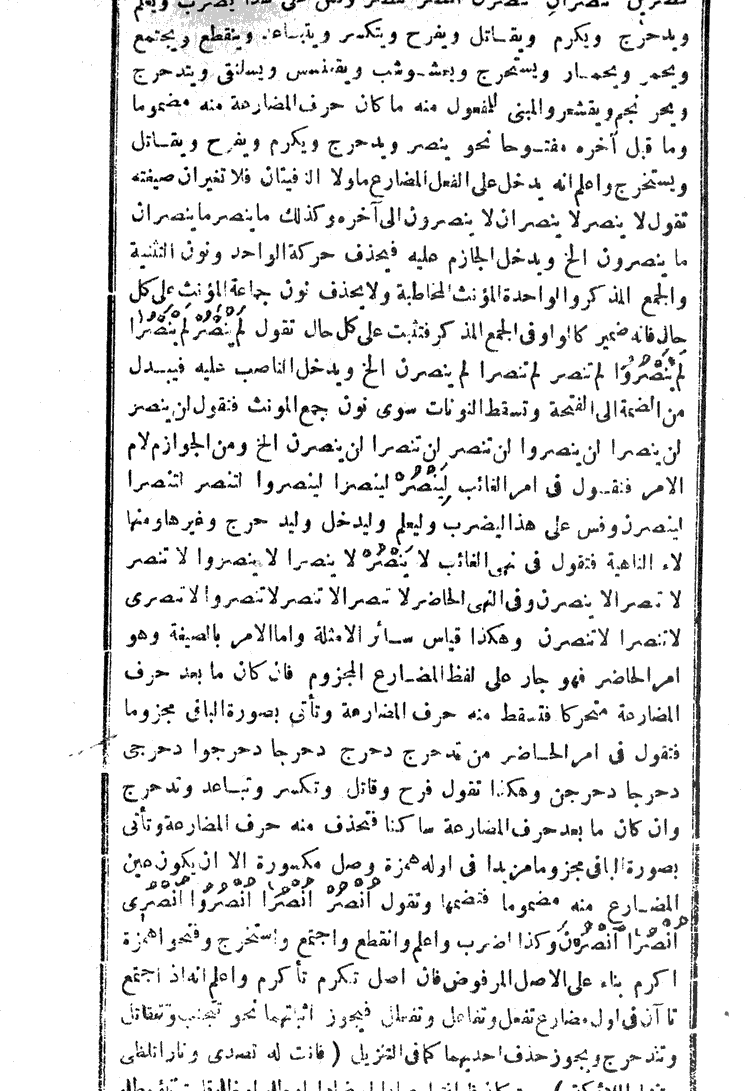 ويدحرج ويكرم ويقاتل ويفرح ويتكسر ويتباعد وينقطع ويجتمع
ويحمر ويحمار ويستخرج ويعشوشب ويقعنسس ويسلنقى ويتدحرج
ويحرنجم ويقشعر والمبنى للمفعول منه ما كان حرف المضارعة منه مضموما
وما قبل آخره مفتوحا نحو ينصر ويدحرج ويكرم ويفرح ويقاتل
ويستخرج واعلم انه يدخل على الفعل المضارع ما ولا النافيتان فلا تغيران صيغته
تقول لا ينصر لا ينصران لا ينصرون الى آخره وكذلك ما ينصر ما ينصران
ما ينصرون الخ ويدخل الجازم عليه فيحذف حركة الواحد ونون التثنية
والجمع المذكر والواحدة المؤنث المخاطبة ولا يحذف نون جماعة المؤنث على كل
حال فانه ضمير كالواو فى الجمع المذكر فتثبت على كل حال تقول لَمْ يَنْصُرْ لَمْ يَنْصُرَا
لَمْ يَنْصُرُوا لم تنصر لم تنصرا لم ينصرن الخ ويدخل الناصب عليه فيبدل
من الضمة الى الفتحة وتسقط النونات سوى نون جمع المونث فتقول لن ينصر
لن ينصرا لن ينصروا لن تنصر لن تنصرا لن ينصرن الخ ومن الجوازم لام
الامر فتقول فى امر الغائب لِيَنْصُرْ لينصرا لينصروا لتنصر لتنصرا
لينصرن وقس على هذا ليضرب وليعلم وليدخل وليدحرج وغيرها ومنها
لاء الناهية فتقول فى نهى الغائب لا يَنْصُرْ لا ينصرا لا ينصروا لا تنصر
لا تنصرا لا ينصرن وفى النهى الحاضر لا تنصر لا تنصرا لا تنصروا لا تنصرى
لا تنصرا لا تنصرن وهكذا قياس سائر الامثلة واما الامر بالصيغة وهو
امر الحاضر فهو جار على لفظ المضارع المجزوم فان كان ما بعد حرف
المضارعة متحركا فتسقط منه حرف المضارعة وتأتى بصورة الباقى مجزوما
فتقول فى امر الحاضر من تدحرج دحرج دحرجا دحرجوا دحرجى
دحرجا دحرجن وهكذا تقول فرح وقاتل وتكسر وتباعد وتدحرج
وان كان ما بعد حرف المضارعة ساكنا فتحذف منه حرف المضارعة وتأتى
بصورة الباقى مجزوما مزيدا فى اوله همزة وصل مكسورة الا ان يكون عين
المضارع منه مضموما فتضمها وتقول اُنْصُرْ اُنْصُرَا اُنْصُرُوا اُنْصُرِى
اُنْصُرَا اُنْصُرْنَ وكذا اضرب واعلم وانقطع واجتمع واستخرج وفتحوا همزة
اكرم بناء على الاصل المرفوض فان اصل تكرم تأكرم واعلم انه اذ اجتمع
تاآن فى اول مضارع تفعل وتفاعل وتفعلل فيجوز اثباتهما نحو تتجنب وتتقاتل
وتتدحرج ويجوز حذف احديهما كما فى التنزيل ( فانت له تصدى ونارا تلظى